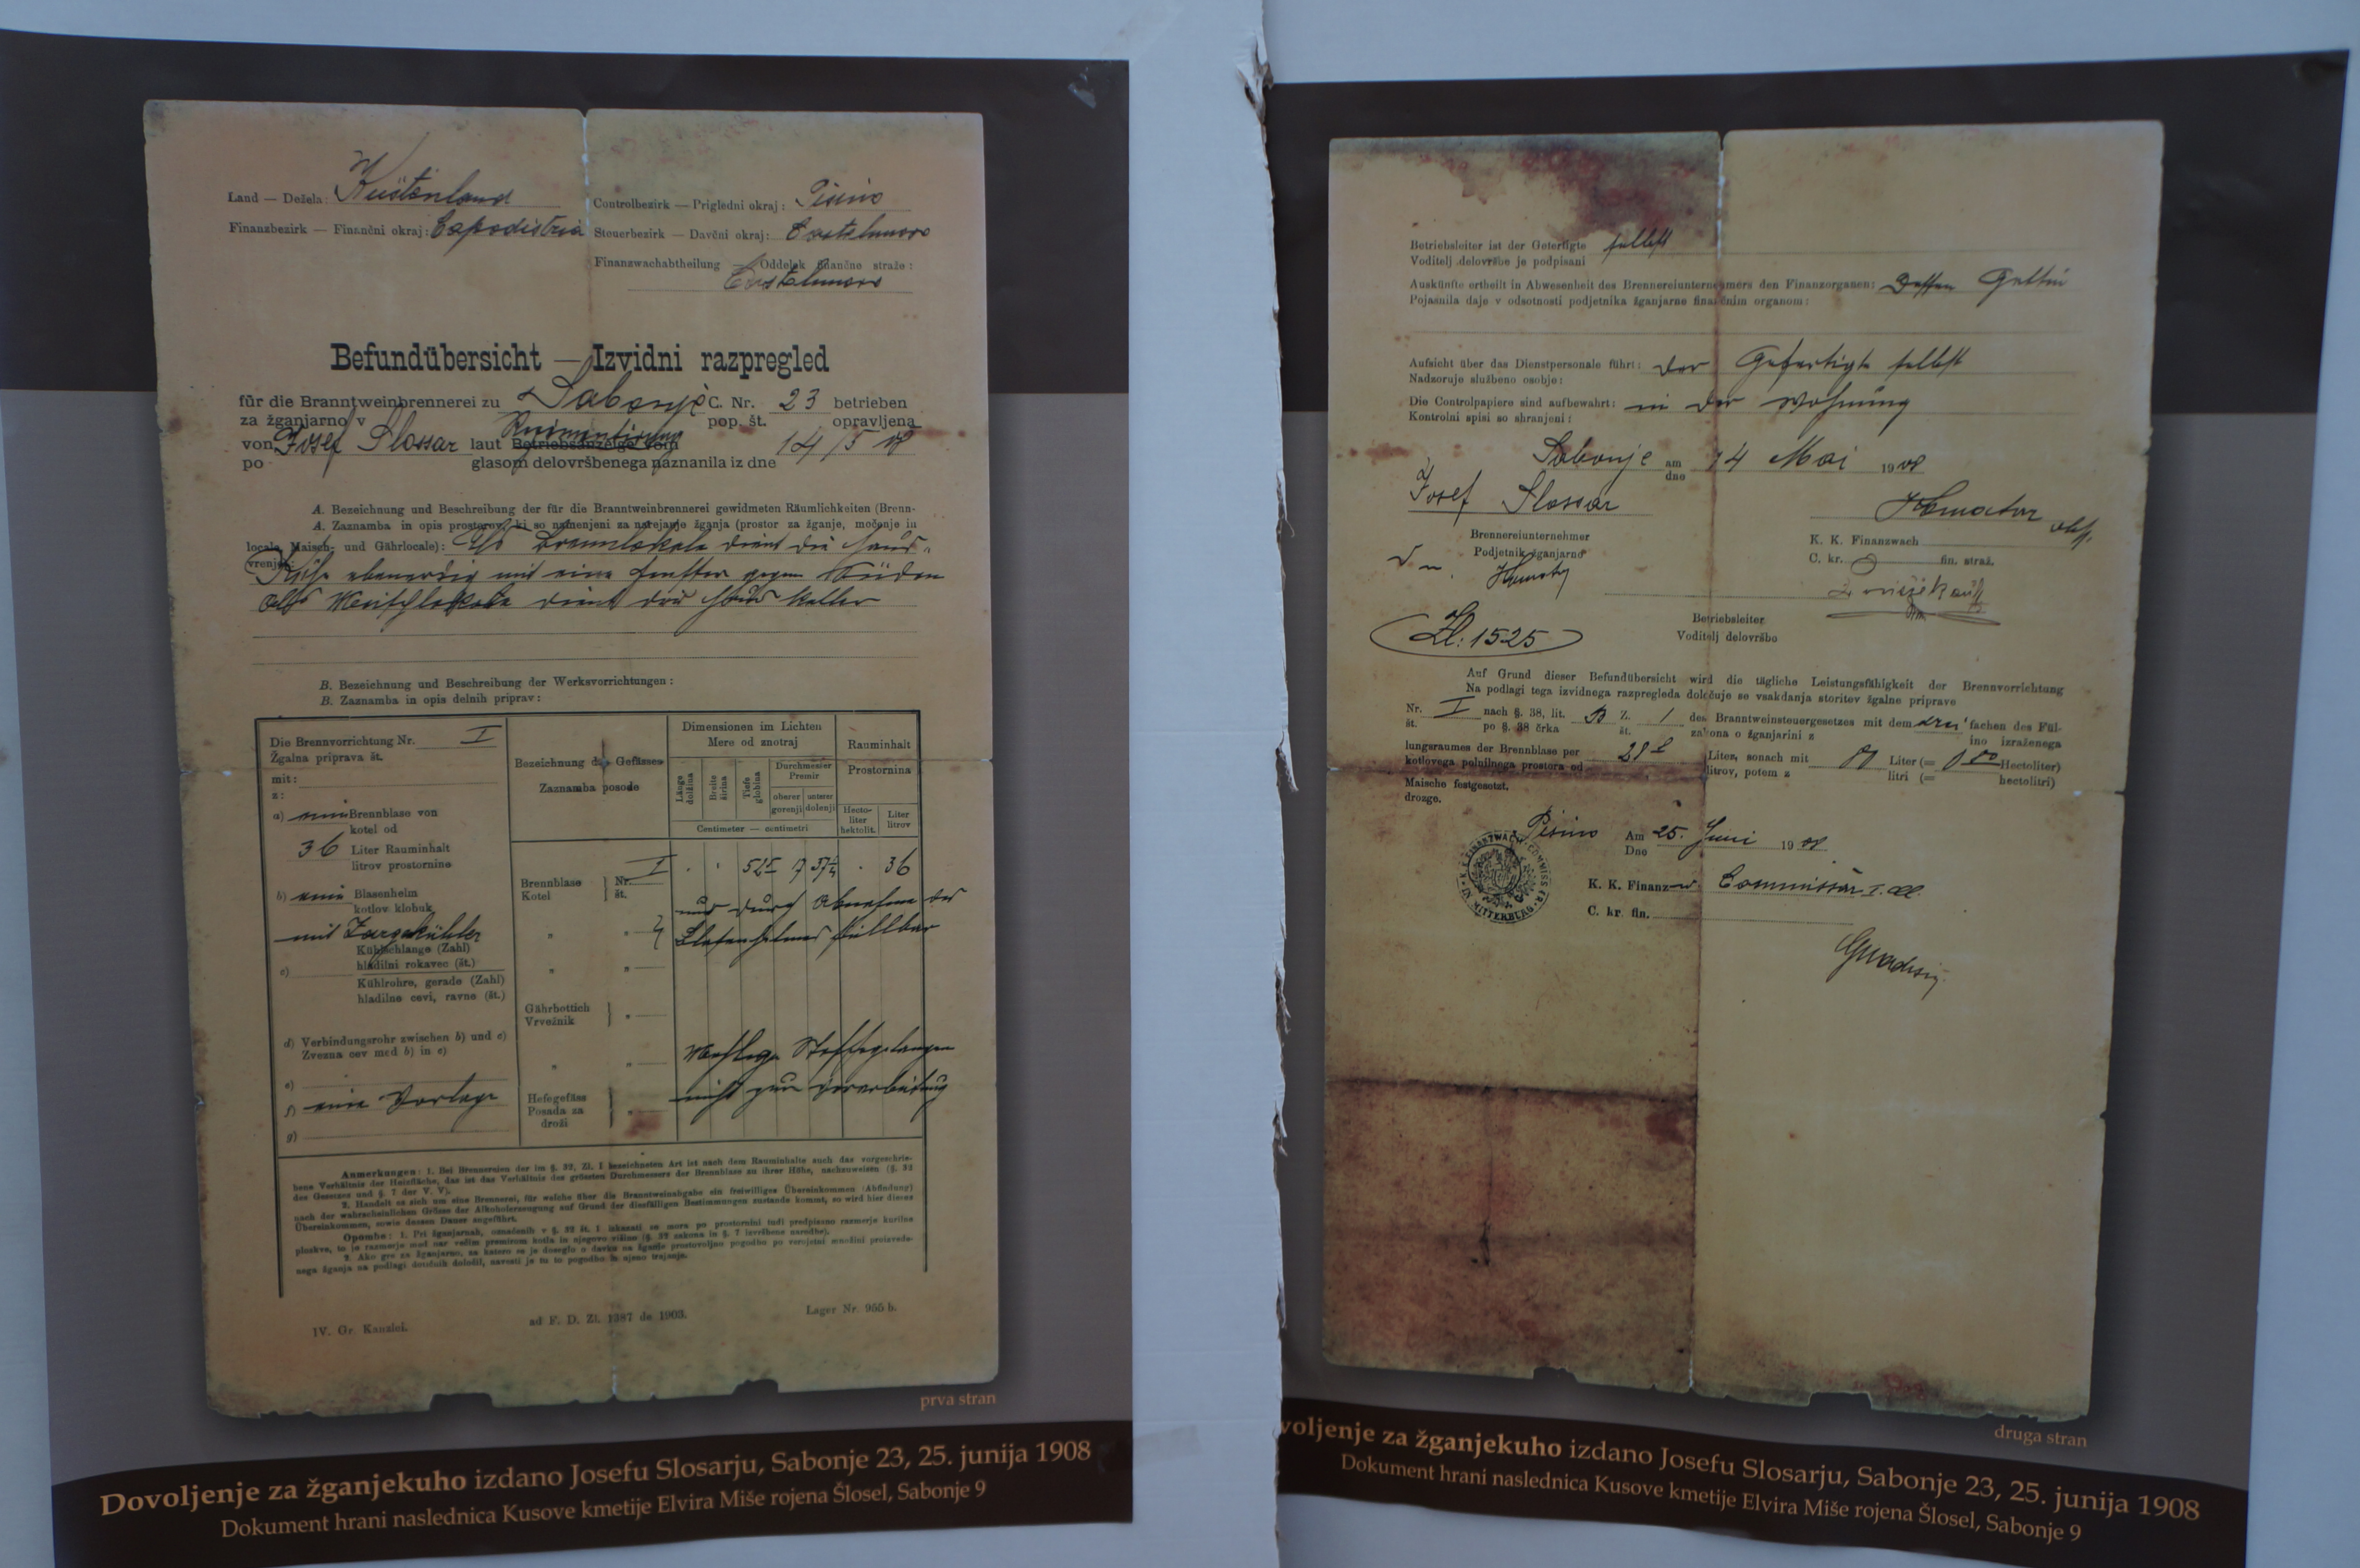 Land — Dežela: Küstenland
Controlbezirk — Prigledni okraj: Pisino
Finanzbezirk — Finančni okraj: Capodistria
Steuerbezirk — Davčni okraj: Castelnuovo
Finanzwachabtheilung — Oddelek finančne straže:
Castelnuovo
Befundübersicht — Izvidni razpregled
für die Branntweinbrennerei zu Sabonje C. Nr. 23 betrieben
za žganjarno v pop. št. opravljena
von Josef Slossar laut Betriebsanzeige vom 14/5 08
po glasom delovršbenega naznanila iz dne
A. Bezeichnung und Beschreibung der für die Branntweinbrennerei gewidmeten Räumlichkeiten (Brenn-
A. Zaznamba in opis prostorov, ki so namenjeni za narejanje žganja (prostor za žganje, močenje in
locale, Maisch- und Gährlocale): Als Brennlokale dient die Haus-
vrenje):
Küche ebenerdig mit eine Fenster gegen Süden
als Maischlokale dient der Haus Keller
B. Bezeichnung und Beschreibung der Werksvorrichtungen:
B. Zaznamba in opis delnih priprav:
Die Brennvorrichtung Nr. I
Žgalna priprava št.
mit:
z:
a) eine Brennblase von
kotel od
36 Liter Rauminhalt
litrov prostornine
b) eine Blasenhelm
kotlov klobuk
mit Zargekühler
Kühlschlange (Zahl)
c) hladilni rokavec (št.)
Kühlrohre, gerade (Zahl)
hladilne cevi, ravne (št.)
d) Verbindungsrohr zwischen b) und c)
Zvezna cev med b) in c)
e)
f) eine Vorlage
g)
Bezeichnung der Gefässe
Zaznamba posode
Dimensionen im Lichten
Mere od znotraj
Länge
dolžina
Breite
širina
Tiefe
globina
Durchmesser
Premir
oberer
gorenji
unterer
dolenji
Centimeter — centimetri
Rauminhalt
Prostornina
Hecto-
liter
hektolit.
Liter
litrov
Brennblase Nr. I
Kotel št.
36
nur durch Abnahme des
Blasenhelmes füllbar
Gährbottich
Vrvežnik
Mehlige Stoffe gelangen
nicht zur Verarbeitung
Hefegefäss
Posada za
droži
Anmerkungen: 1. Bei Brennereien der im §. 32, Zl. I bezeichneten Art ist nach dem Rauminhalte auch das vorgeschrie-
bene Verhältnis der Heizfläche, das ist das Verhältnis des grössten Durchmessers der Brennblase zu ihrer Höhe, nachzuweisen (§. 32
des Gesetzes und §. 7 der V. V).
2. Handelt es sich um eine Brennerei, für welche über die Branntweinabgabe ein freiwilliges Übereinkommen (Abfindung)
nach der wahrscheinlichen Grösse der Alkoholerzeugung auf Grund der diesfälligen Bestimmungen zustande kommt, so wird hier dieses
Übereinkommen, sowie dessen Dauer angeführt.
Opombe: 1. Pri žganjarnah, označenih v §. 32 št. I izkazati se mora po prostornini tudi predpisano razmerje kurilne
ploskve, to je razmerje med nar večim premirom kotla in njegovo višino (§. 32 zakona in §. 7 izvršbene naredbe).
2. Ako gre za žganjarno, za katero se je doseglo o davku na žganje prostovoljno pogodbo po verojetni množini proizvede-
nega žganja na podlagi dotičnih določil, navesti je tu to pogodbo in njeno trajanje.
IV. Gr. Kanzlei.
ad F. D. Zl. 1387 de 1903.
Lager Nr. 955 b.
prva stran
Dovoljenje za žganjekuho izdano Josefu Slosarju, Sabonje 23, 25. junija 1908
Dokument hrani naslednica Kusove kmetije Elvira Miše rojena Šlosel, Sabonje 9
Betriebsleiter ist der Gefertigte selbst
Voditelj delovršbe je podpisani
Auskünfte ertheilt in Abwesenheit des Brennereiunternehmers den Finanzorganen: Dessen Gattin
Pojasnila daje v odsotnosti podjetnika žganjarne finančnim organom:
Aufsicht über das Dienstpersonale führt: der Gefertigte selbst
Nadzoruje službeno osobje:
Die Controlpapiere sind aufbewahrt: in der Wohnung
Kontrolni spisi so shranjeni:
Sabonje am 14 Mai 1908
dne
Josef Slossar
Brennereiunternehmer
Podjetnik žganjarne
K. K. Finanzwach
C. kr. fin. straž.
Betriebsleiter
Voditelj delovršbe
Zl: 1525
Auf Grund dieser Befundübersicht wird die tägliche Leistungsfähigkeit der Brennvorrichtung
Na podlagi tega izvidnega razpregleda določuje se vsakdanja storitev žgalne priprave
Nr. I nach §. 38, lit. B Z. 1 des Branntweinsteuergesetzes mit dem drei fachen des Fül-
št. po §. 38 črka št. zakona o žganjarini z ino izraženega
lungsraumes der Brennblase per Liter, sonach mit Liter (= Hectoliter)
kotlovega polnilnega prostora od litrov, potem z litri (= hectolitri)
Maische festgesetzt.
drozge.
Pisino Am 25. Juni 1908
Dne
K. K. FINANZWACH-COMMISSÄR IN MITTERBURG
K. K. Finanz-w. Commissär I. Cl.
C. kr. fin.
druga stran
voljenje za žganjekuho izdano Josefu Slosarju, Sabonje 23, 25. junija 1908
Dokument hrani naslednica Kusove kmetije Elvira Miše rojena Šlosel, Sabonje 9